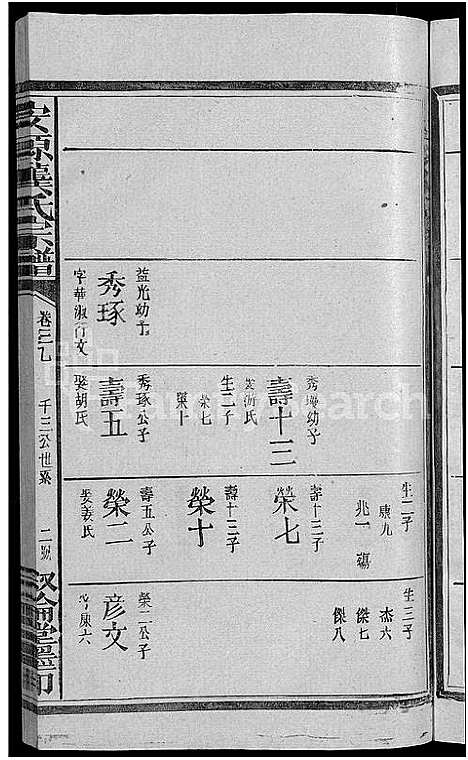 生二子
康九
兆一 殤
生三子
杰六
傑七
傑八
秀瓊幼子
壽十三
娶游氏
生二子
榮七
榮十
壽十三子
榮七
壽十三子
榮十
益光幼子
秀琢
字華淑行文
秀琢公子
壽五
娶胡氏
壽五公子
榮二
娶姜氏
榮二公子
彦文
行康六
安源龔氏宗譜
千三公世系
二號
敘倫堂